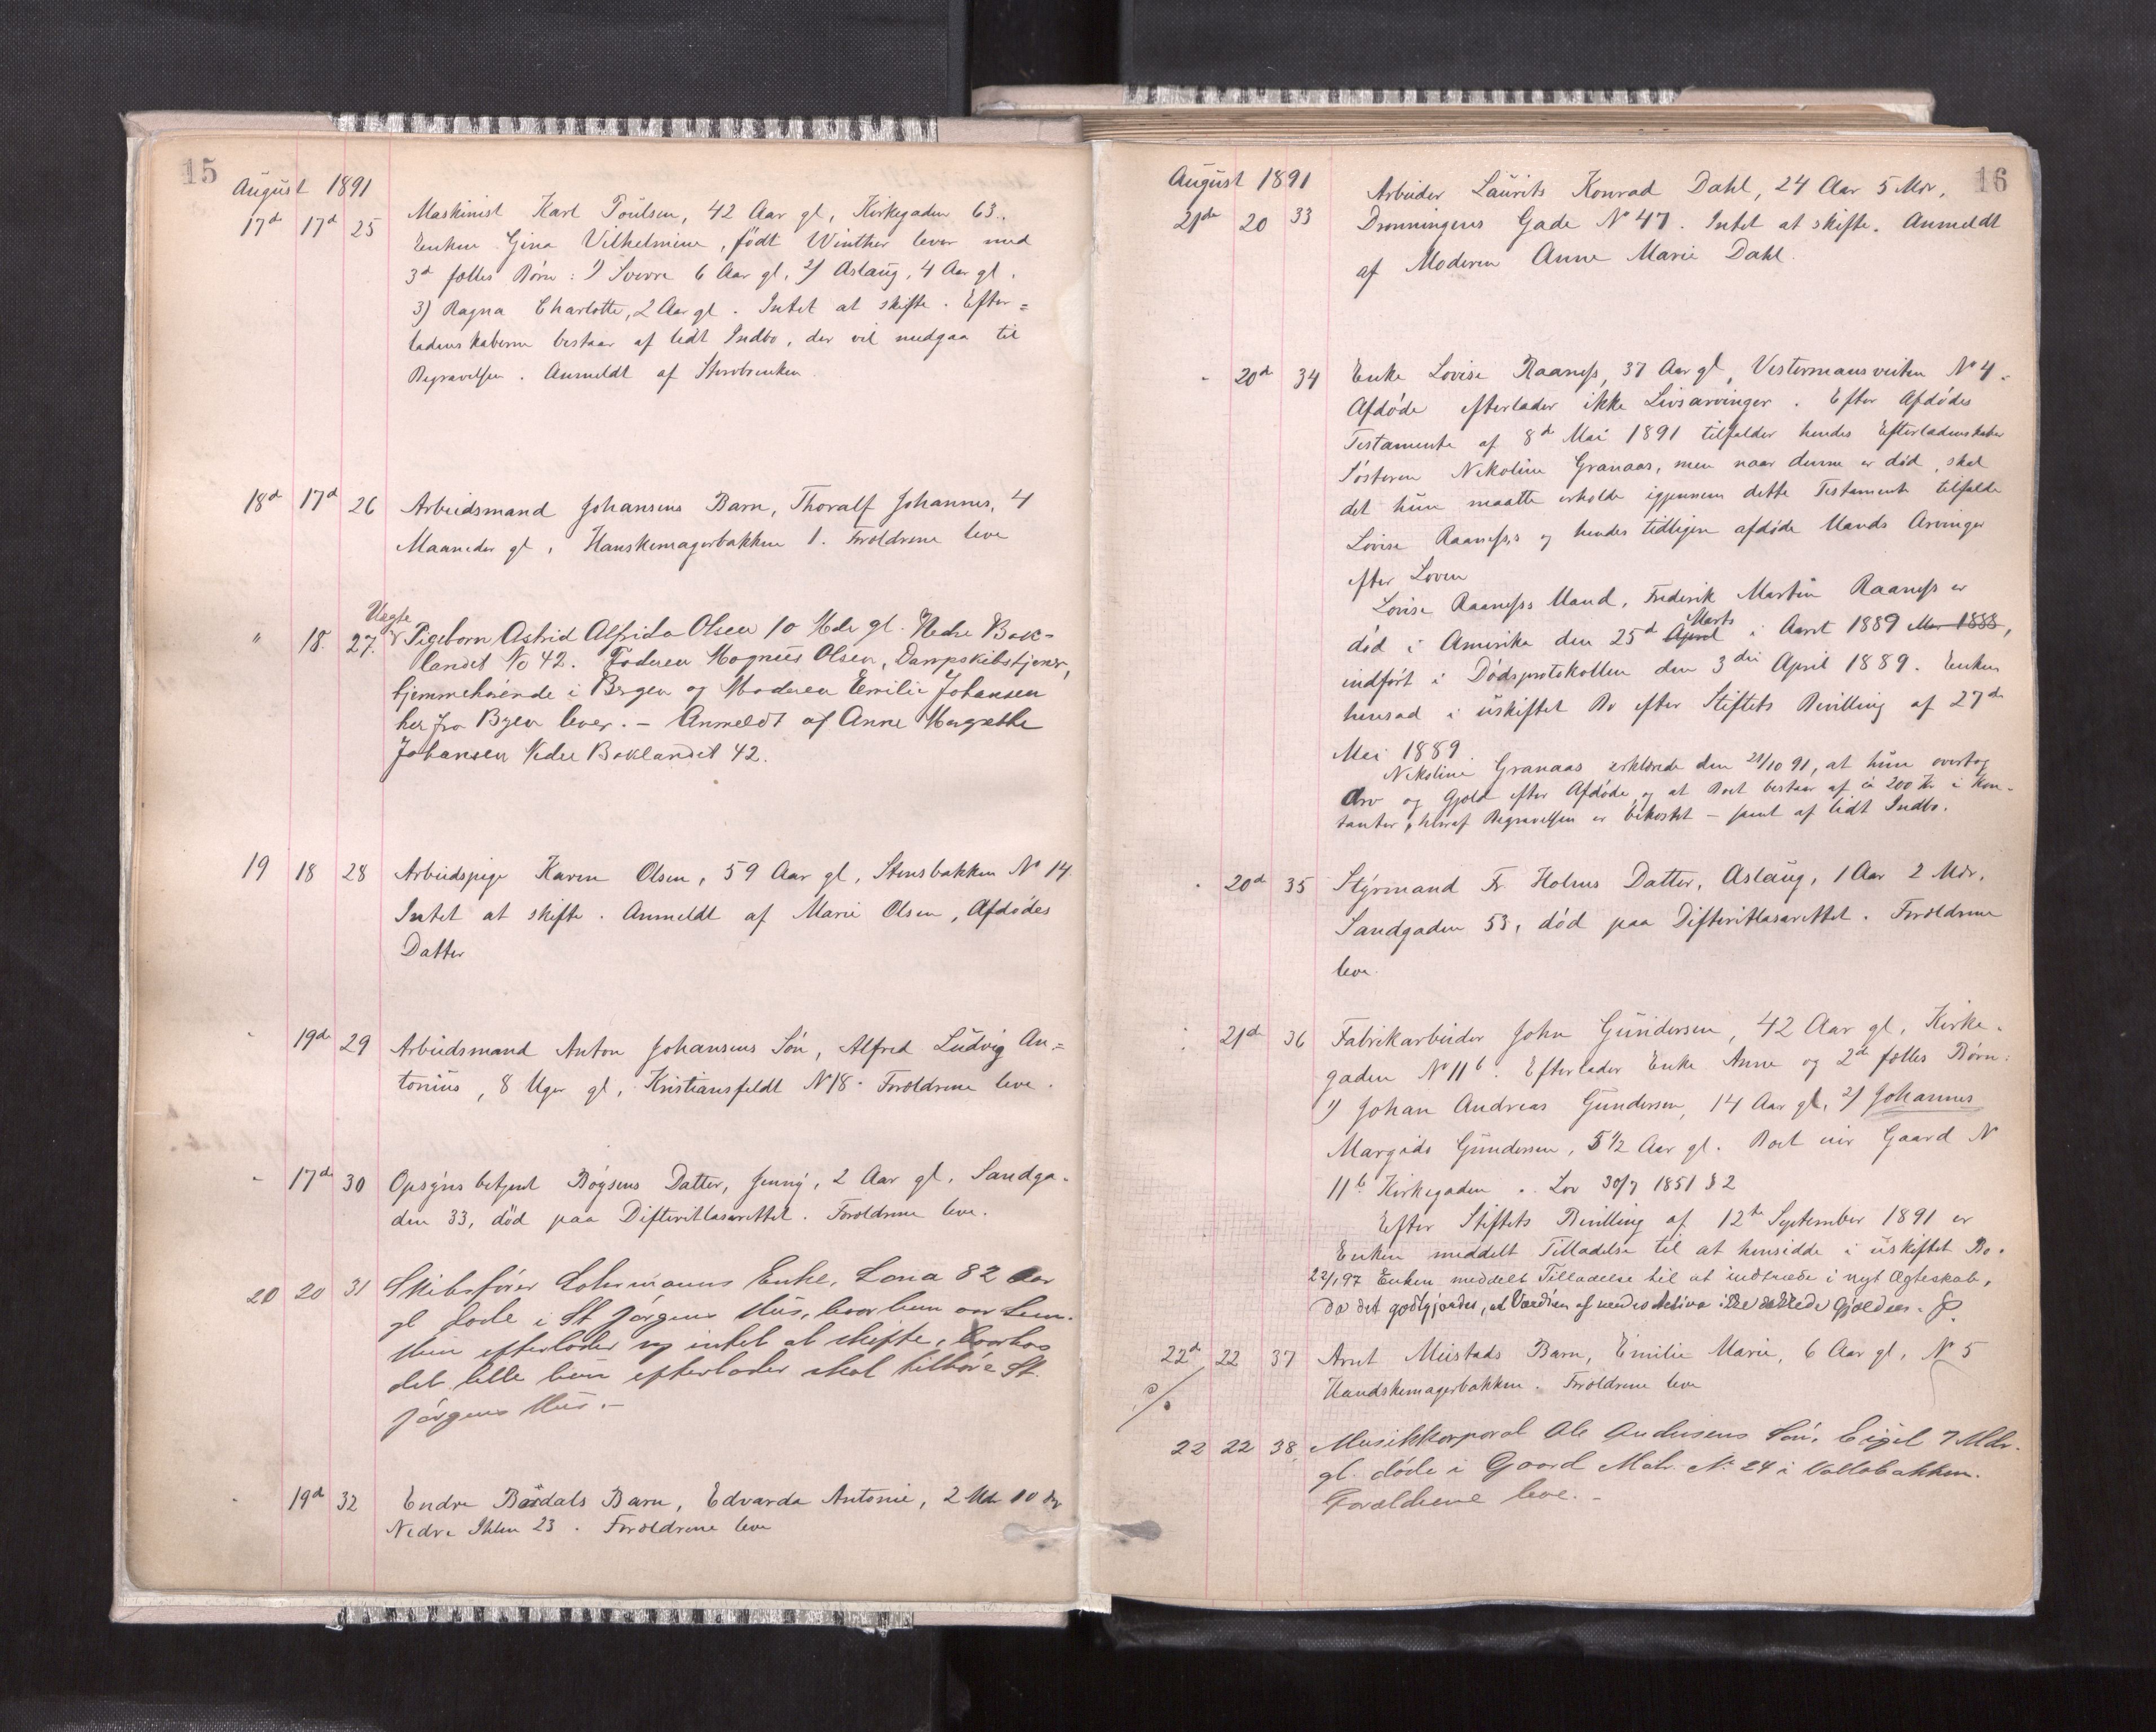 15
August 1891
17d 17d 25 Maskinist Karl Poulsen, 42 Aar gl, Kirkegaden 63.
Enken Gina Vilhelmine, født Winther lever med
3d fælles Børn: 1) Sverre 6 Aar gl, 2) Aslaug, 4 Aar gl.
3) Ragna Charlotte, 2 Aar gl. Intet at skifte. Efter=
ladenskaberne bestaar af lidt Indbo, der vil medgaa til
Begravelsen. Anmeldt af Stervbenken
18d 17d 26 Arbeidsmand Johansens Barn, Thoralf Johannes, 4
Maaneder gl, Hanskemagerbakken 1. Forældrene leve
Uægte
" 18. 27. Pigebarn Astrid Alfrida Olsen 10 Mdr gl. Nedre Bak-
landet No 42. Faderen Magnus Olsen, Dampskibstjener,
hjemmehørende i Bergen og Moderen Emilie Johansen
her fra Byen lever. - Anmeldt af Anne Margrethe
Johansen Nedre Baklandet 42.
19 18 28 Arbeidspige Karen Olsen, 59 Aar gl, Stensbakken No 14.
Intet at skifte. Anmeldt af Marie Olsen, Afdødes
Datter
- 19de 29 Arbeidsmand Anton Johansens Søn, Alfred Ludvig An=
tonius, 8 Uger gl, Kristiansfeldt N 18. Forældrene leve.
- 17d 30 Opsynsbetjent Bøysens Datter, Jenny, 2 Aar gl, Sandga-
den 33, død paa Difteritlasarettet. Forældrene leve.
20 20 31 Skibsfører Enke, 82 Aar
gl døde i St Jørgens Hus, hvor hun var Lem.
Hun efterlader sig intet at skifte, hvorhos
det lille hun efterlader skal tilhøre St.
Jørgens Hus.-
- 19d 32 Endre Barn, Edvarda Antonie, 2 Mdr 10 Dg
Nedre Ihlen 23. Forældrene leve
16
August 1891
21de 20 33 Arbeider Laurits Konrad Dahl, 24 Aar 5 Mdr,
Dronningens Gade No 47. Intet at skifte. Anmeldt
af Moderen Anne Marie Dahl.
- 20d 34 Enke Lovise Raaness, 37 Aar gl, Vestermansveiten No 4.
Afdøde efterlader ikke Livsarvinger. Efter Afdødes
Testamente af 8d Mai 1891 tilfalder hendes Efterladenskaber
Søsteren Nekoline Granaas, men naar denne er død, skal
det hun maatte erholde igjennem dette Testamente tilfalde
Lovise Raaness's og hendes tidligere afdøde Mands Arvinger
efter Loven
Lovise Raaness's Mand, Frederik Martin Raaness er
død i Amerika den 25d April Marts i Aaret 1889 1888,
indført i Dødsprotokollen den 3die April 1889. Enken
hensad i uskiftet Bo efter Stiftets Bevilling af 27de
Mai 1889.
Nekoline Granaas erklærede den 21/10 91, at hun overtog
Arv og Gjeld efter Afdøde og at Boet bestaar af ca 200 Kr i Kon-
tanter, hvoraf Begravelsen er bekostet - samt af lidt Indbo.
- 20d 35 Styrmand Fr. Holms Datter, Aslaug, 1 Aar 2 Mdr,
Sandgaden 53, død paa Difteritlasarettet. Forældrene
leve.
- 21de 36 Fabrikarbeider John Gundersen, 42 Aar gl, Kirke-
gaden No 11b. Efterlader Enke Anne og 2de fælles Børn:
1) Johan Andreas Gundersen, 14 Aar gl, 2) Johannes
Margido Gundersen, 5 1/2 Aar gl. Boet eier Gaard N
11b Kirkegaden. Lov 30/7 1851 § 2
Efter Stiftets Bevilling af 12te September 1891 er
Enken meddelt Tilladelse til at hensidde i uskiftet Bo.
22/1 97 Enken meddelt Tilladelse til at indtræde i nyt Ægteskab,
da det godtgjordes, at Værdien af hendes Aktiva ikke dækkede Gjælden.
22d 22 37 Arnt Meistads Barn, Emilie Marie, 6 Aar gl, No 5
Handskemagerbakken. Forældrene leve
22 22 38. Musikkorporal Ole Andersens Søn, Eigil 7 Mdr.
gl. døde i Gaard Matr. No 24 i Vollabakken.
Forældrene leve. -